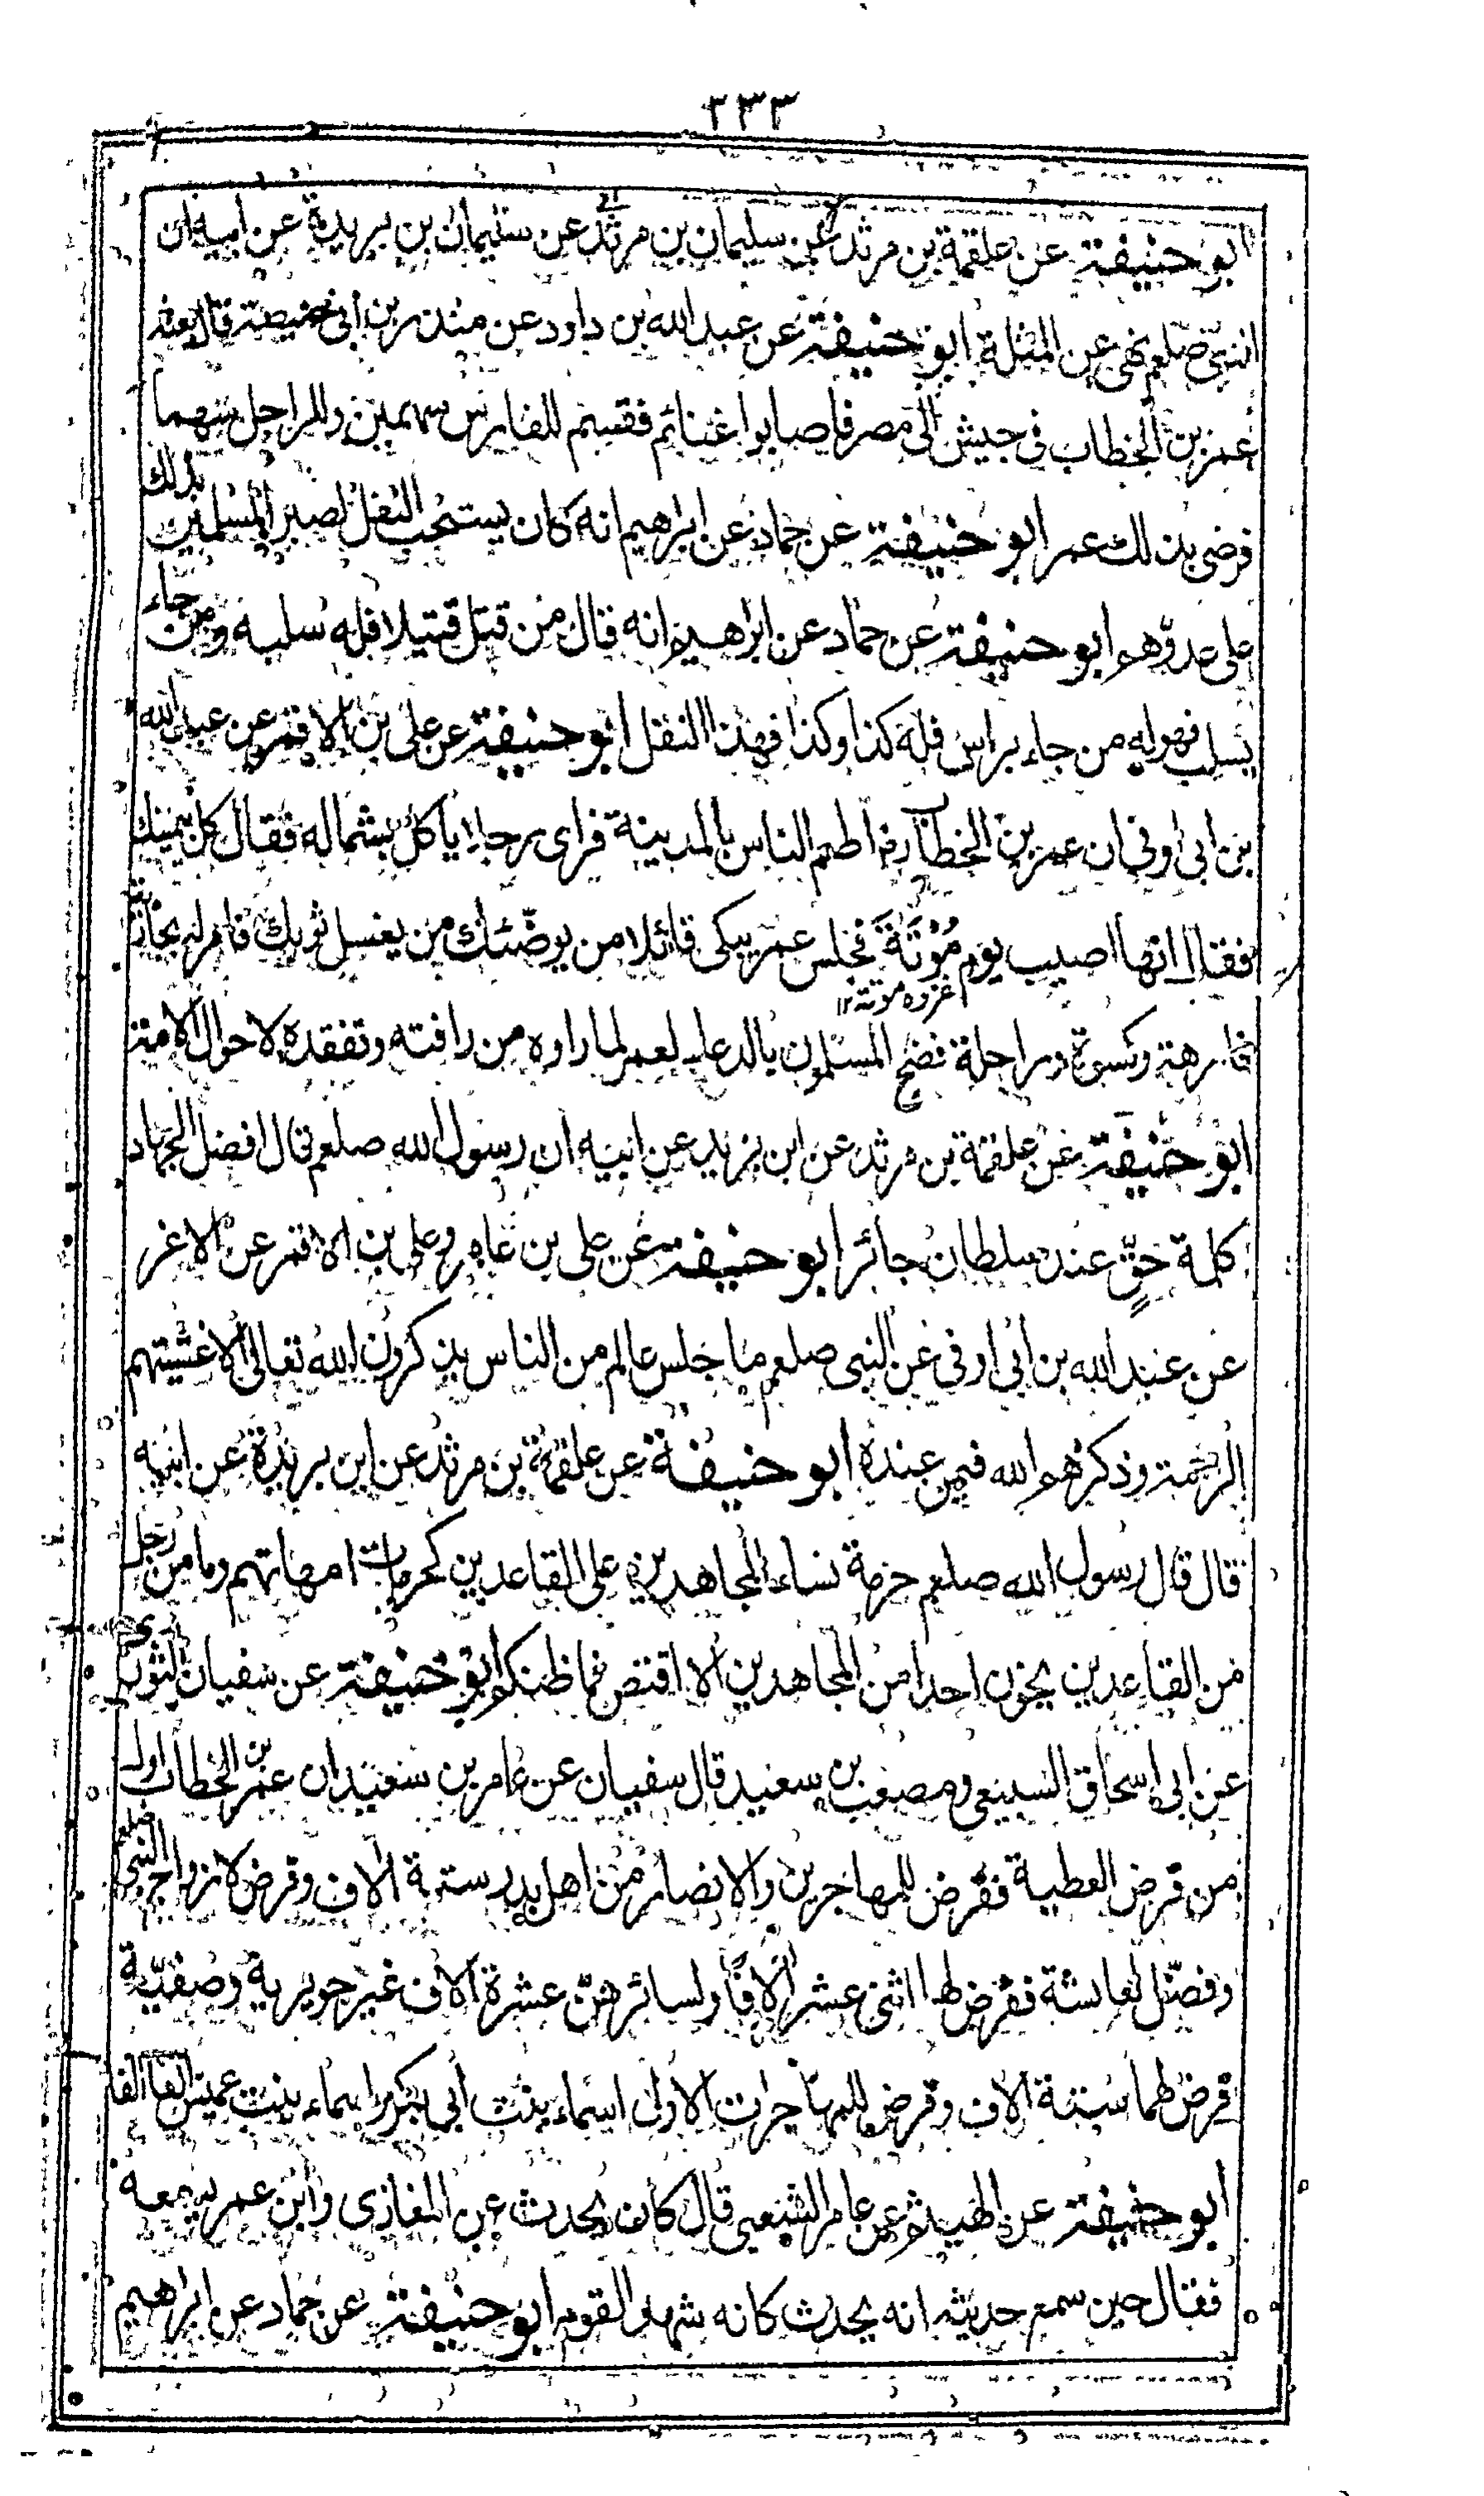 ٢٣٣
ابو حنيفة عن علقمة بن مرثد عن سليمان بن مرثد عن سليمان بن بريدة عن ابيه ان
النبي صلعم نهى عن المثلة ابو حنيفة عن عبد الله بن داود عن منذر بن ابي حميصة قال بعثه
عمر بن الخطاب في جيش الى مصر فاصابوا غنائم فقسم للفارس سهمين وللراجل سهما
فرضى بذلك عمر ابو حنيفة عن حماد عن ابراهيم انه كان يستحب النفل لصبر المسلمين بذلك
على عدوهم ابو حنيفة عن حماد عن ابراهيم انه قال من قتل قتيلا فله سلبه ومن جاء
بسلب فهو له من جاء براس فله كذا وكذا فهذا النفل ابو حنيفة عن علي بن الاقمر عن عبد الله
بن ابي اوفى ان عمر بن الخطاب رض اطعم الناس بالمدينة فراى رجلا ياكل بشماله فقال كل بيمينك
فقال انها اصيب يوم مُؤتَةَ فجلس عمر يبكى قائلا من يوضّئك من يغسل ثوبك فامر له بخادمة
غزوه موتة ١٢
فارهة وكسوة وراحلة فضج المسلمون بالدعاء لعمر لما راوه من رافته وتفقده لاحوال الامة
ابو حنيفة عن علقمة بن مرثد عن ابن بريد عن ابيه ان رسول الله صلعم قال افضل الجهاد
كلمة حقٍّ عند سلطان جائر ابو حنيفة عن علي بن عامر وعلي بن الاقمر عن الاغر
عن عبد الله بن ابي اوفى عن النبي صلعم ما جلس عالم من الناس يذكرون الله تعالى الا غشيتهم
الرحمة وذكرهم الله فيمن عنده ابو حنيفة عن علقمة بن مرثد عن ابن بريدة عن ابيه
قال قال رسول الله صلعم حرمة نساء المجاهدين على القاعدين كحرمات امهاتهم وما من رجل
من القاعدين يخون احدا من المجاهدين الا اقتص فما ظنكم ابو حنيفة عن سفيان الثوري
عن ابي اسحاق السبيعي ومصعب بن سعيد قال سفيان عن عامر بن سعيد ان عمر بن الخطاب اول
من فرض العطية ففرض للمهاجرين والانصار من اهل بدر ستة الاف وفرض لازواج النبي صلعم
وفضّل لعائشة ففرض لها اثنى عشر الافا ولسائرهن عشرة الاف غير جويرية وصفيّة
فرض لهما ستة الاف وفرض للمهاجرات الاول اسماء بنت ابي بكر واسماء بنت عميس الفا الفا
ابو حنيفة عن الهيثم عن عامر الشعبي قال كان يحدث عن المغازى وابن عمر يسمعه
فقال حين سمع حديثه انه يحدث كانه شهد القوم ابو حنيفة عن حماد عن ابراهيم